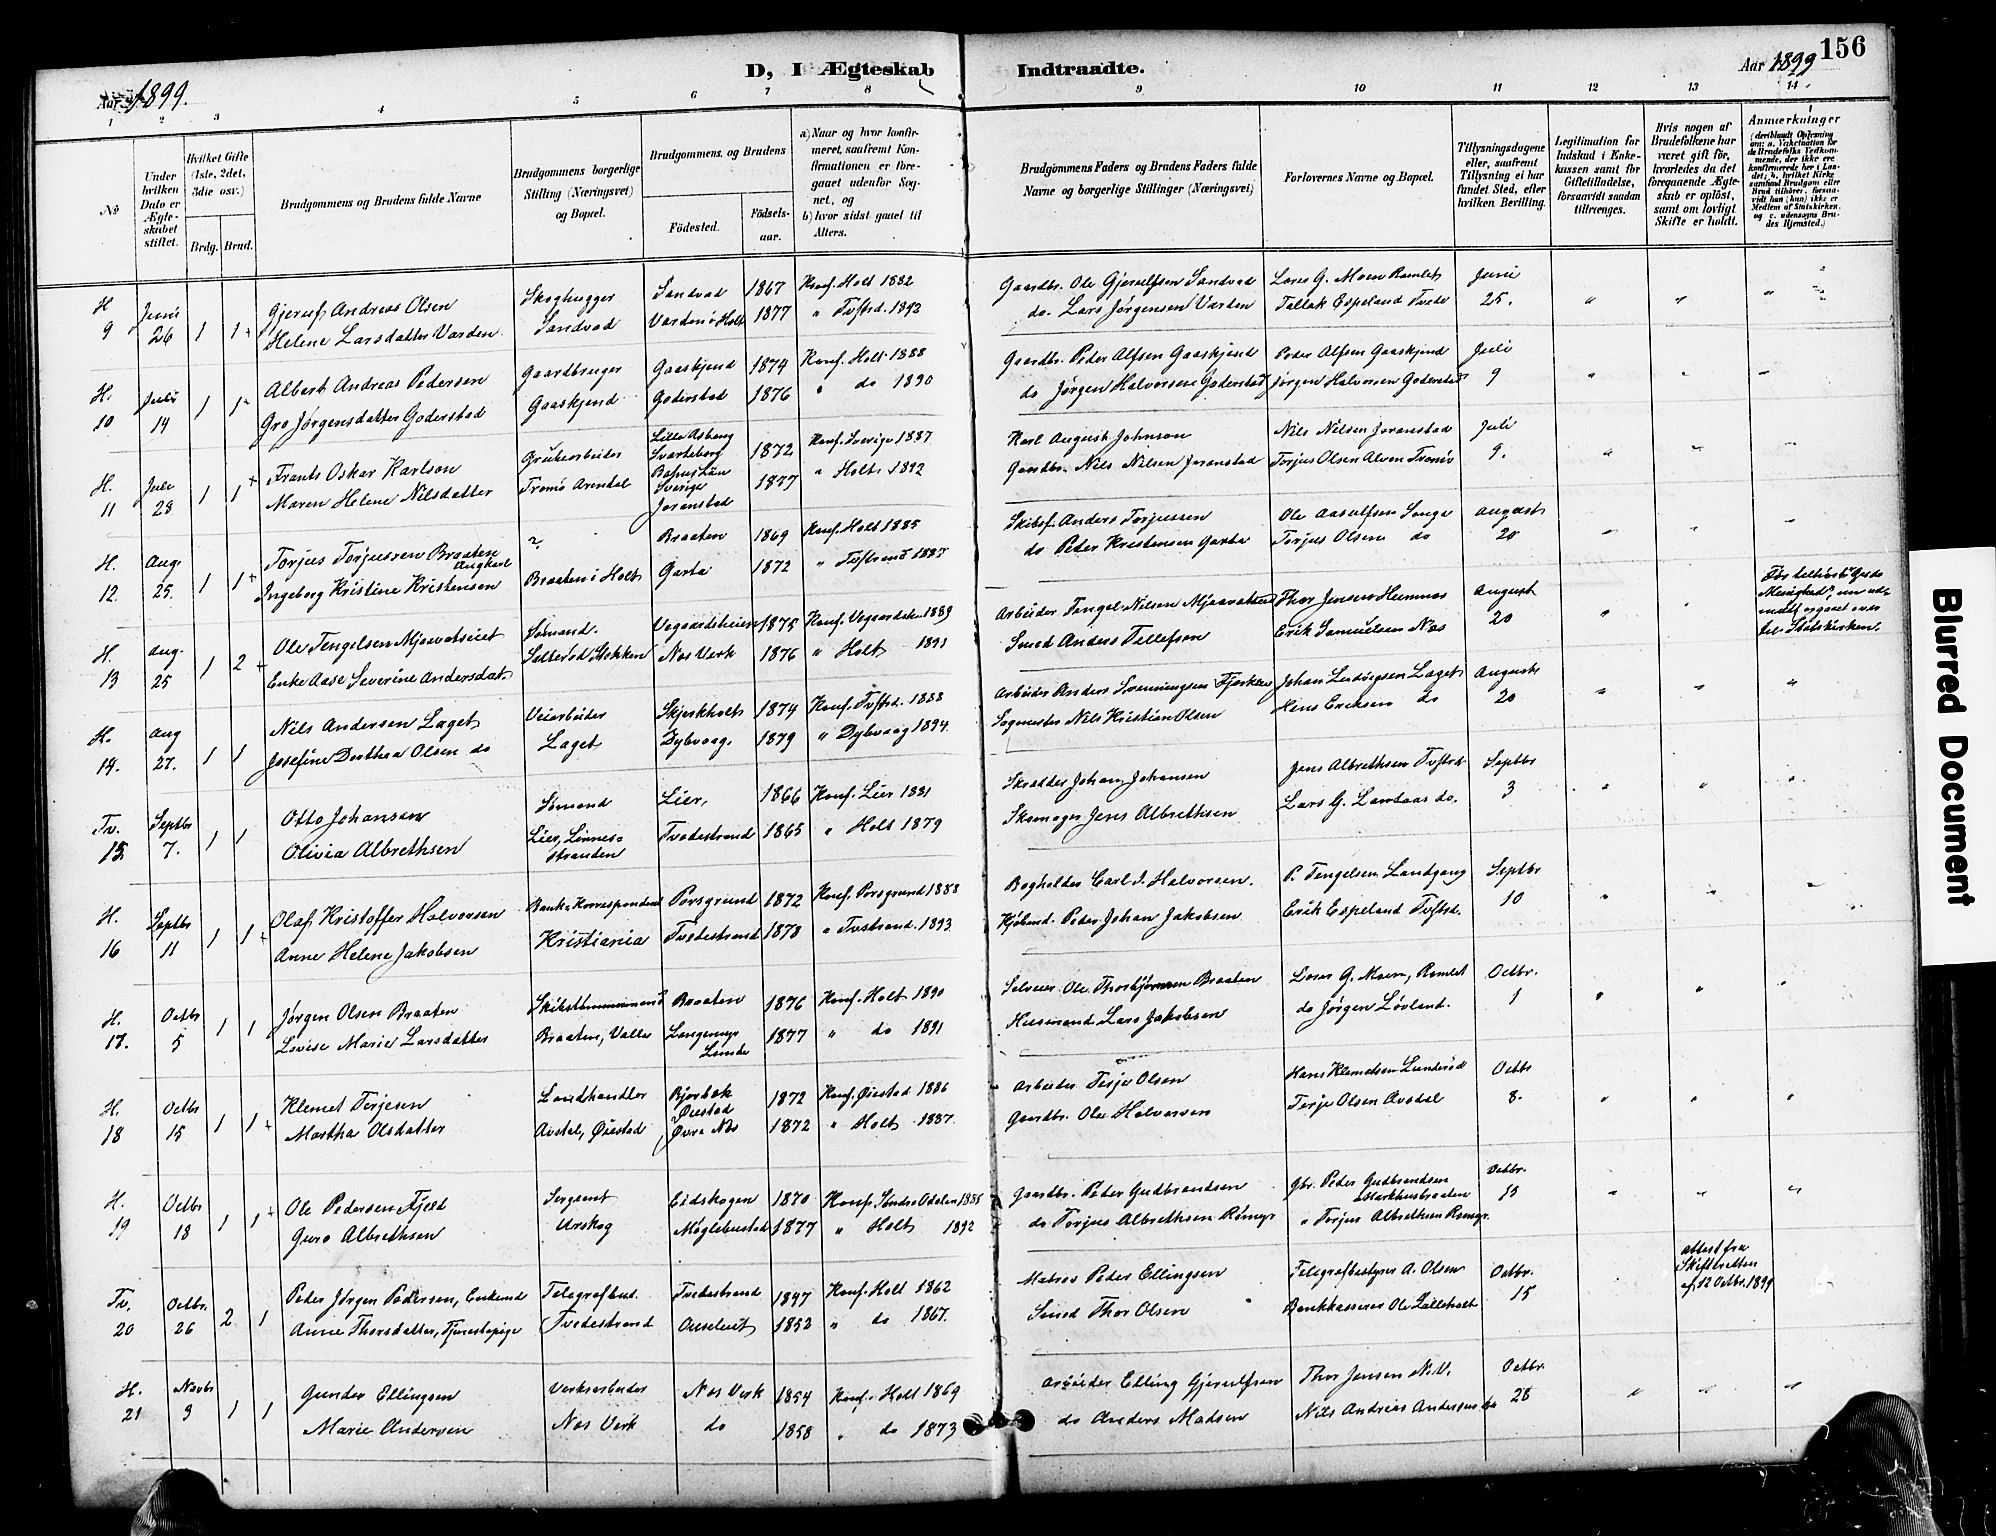 156
Aar 1899.
D, I Ægteskab Indtraadte.
Aar 1899
1 2 3 4 5 6 7 8 9 10 11 12 13 14
№
Under hvilken Dato er Ægteskabet stiftet.
Hvilket Gifte (1ste, 2det, 3die osv.)
Brdg. Brud.
Brudgommens og Brudens fulde Navne
Brudgommens borgerlige Stilling (Næringsvei) og Bopæl.
Brudgommens og Brudens
Fødested.
Fødselsaar.
a) Naar og hvor konfirmeret, saafremt Konfirmationen er foregaaet udenfor Sognet, og
b) hvor sidst gaaet til Alters.
Brudgommens Faders og Brudens Faders fulde Navne og borgerlige Stillinger (Næringsvei)
Forlovernes Navne og Bopæl.
Tillysningsdagene eller, saafremt Tillysning ei har fundet Sted, efter hvilken Bevilling.
Legitimation for Indskud i Enkekassen samt for Giftetilladelse, forsaavidt saadan tiltrænges.
Hvis nogen af Brudefolkene har været gift før, hvorledes da det foregaaende Ægteskab er opløst, samt om lovligt Skifte er holdt.
Anmærkninger
H Juni 1 1 Gjeruf Andreas Olsen Skoghugger Sandvad 1867 Konf. Holt 1882 Gaardbr. Ole Gjerulfsen Sandvad Lars G. Moen Ramlet Juni
9 26 Helene Larsdatter Varden Sandvad Varden i Holt 1877 " Tvstrd. 1892 do. Lars Jørgensen Varden Tallak Espeland Tvede 25.
H. Juli 1 1 Albert Andreas Pedersen Gaardbruger Gaaskjend 1874 Konf. Holt 1888 Gaardbr. Peder Alfsen Gaaskjend Peder Alfsen Gaaskjend Juli
10 14 Gro Jørgensdatter Goderstad Gaaskjend Goderstad 1876 " do 1890 do Jørgen Halvorsen Goderstad Jørgen Halvorsen Goderstad 9
H. Juli 1 1 Frants Oskar Karlson Grubearbeider Svarteborg Bahus Län Sverige 1872 Konf. Sverige 1887 Karl August Johnson Nils Nilsen Joranstad Juli
11 28 Maren Helene Nilsdatter Tromø Arendal Joranstad 1877 " Holt 1892 Gaardbr. Nils Nilsen Joranstad Torjus Olsen Alven Tromø 9.
H. Aug. 1 1 Torjus Torjussen Braaten Ungkarl ? Braaten 1869 Konf. Holt 1885 Skibsf. Anders Torjussen Ole Aasulfsen Songe August
12. 25. Ingeborg Kristine Kristensen Braaten i Holt Garta 1872 " Tvstrand 1887 do Peder Kristensen Garta Torjus Olsen do 20
H. Aug. 1 2 Ole Tengelsen Mjaavatseiet Sømand. Vegaardsheien 1875 Konf. Vegaardsh. 1889 Arbeider Tengel Nilsen Mjaavatseiet Thor Jensen August
13 25 Enke Aase Severine Andersdat. Stokken Næs Verk 1876 " Holt 1891 Smed Anders Tellefsen Erik Samuelsen Næs 20
H. Aug 1 1 Nils Andersen Laget Veiarbeider Skjerkholt 1874 Konf. Tvstrd. 1888 Arbeider Anders Svenningsen Johan Ludvigsen Laget August
14. 27. Josefine Dorthea Olsen do Laget Dybvaag. 1879 " Dybvaag 1894. Sagmester Nils Kristian Olsen Hans Eriksen do 20
Tv. Septbr 1 1 Otto Johansen Sømand Lier, 1866 Konf. Lier 1881 Skrædder Johan Johansen Jens Albrethsen Tvstrd. Septbr
15 7. Olivia Albrethsen Lier, Linnesstranden Tvedestrand 1865 " Holt 1879 Skomager Jens Albrethsen Lars G. Landaas do. 3
H. Septbr 1 1 Olaf Kristoffer Halvorsen Bank. Korrespondent Porsgrund 1872 Konf. Porsgrund 1888 Bogholder Carl J. Halvorsen. P. Tengelsen Landgang Septbr
16 11 Anne Helene Jakobsen Kristiania Tvedestrand 1878 " Tvstrand. 1893. Kjøbmd. Peder Johan Jakobsen Erik Espeland Tvstrd. 10
H. Octbr 1 1 Jørgen Olsen Braaten Skibstømmermand Braaten 1876 Konf. Holt 1890 Selveier Ole Thorbjørnsen Braaten Lars G. Moen, Ramlet Octbr.
17. 5 Lovise Marie Larsdatter Braaten, Valle Langemyr Lunde 1877 " do 1891 Husmand Lars Jakobsen do Jørgen Løvland. 1
H. Octbr 1 1 Klemet Terjesen Landhandler Bjorbæk Øiestad 1872 Konf. Øiestad 1886 Arbeider Terje Olsen Hans Klemetsen Lunderød Octbr
18 15 Martha Olsdatter Avstal, Øiestad Øvre Næs 1872 " Holt 1887. Gaardbr. Ole Halvorsen Terje Olsen Avsdal 8.
H. Octbr 1 1 Ole Pedersen Fjeld Sergeant Eidskogen 1870 Konf. Søndre Odalen 1885 Gaardbr. Peder Gudbrandsen Gbr. Peder Gudbrandsen Markhusbraaten Octbr.
19 18 Guro Albrethsen Urskog Møglebustad 1877 " Holt 1892 do Torjus Albrethsen Rømyr " Torjus Albrethsen Rømyr. 15
Tv. Octbr. 2 1 Peder Jørgen Pedersen, Enkemd Telegrafbud. Tvedestrand 1847 Konf. Holt 1862 Matros Peder Ellingsen Telegrafbestyrer A. Olsen Octbr. Attest fra Skifteretten af 12 Octbr. 1899
20 26 Anne Thorsdatter, Tjenestepige Tvedestrand 1852 " do 1867. Smed Thor Olsen Bankkasserer Ole Lilleholt 15
H. Novbr 1 1 Gunder Ellingsen Verksarbeider Næs Verk 1854 Konf. Holt 1869 Arbeider Elling Gjerulfsen Thor Jensen N.V. Octbr.
21 3 Marie Andersen Næs Verk do 1858 " do 1873 do Anders Madsen Nils Andreas Andersen do 28
Blurred Document